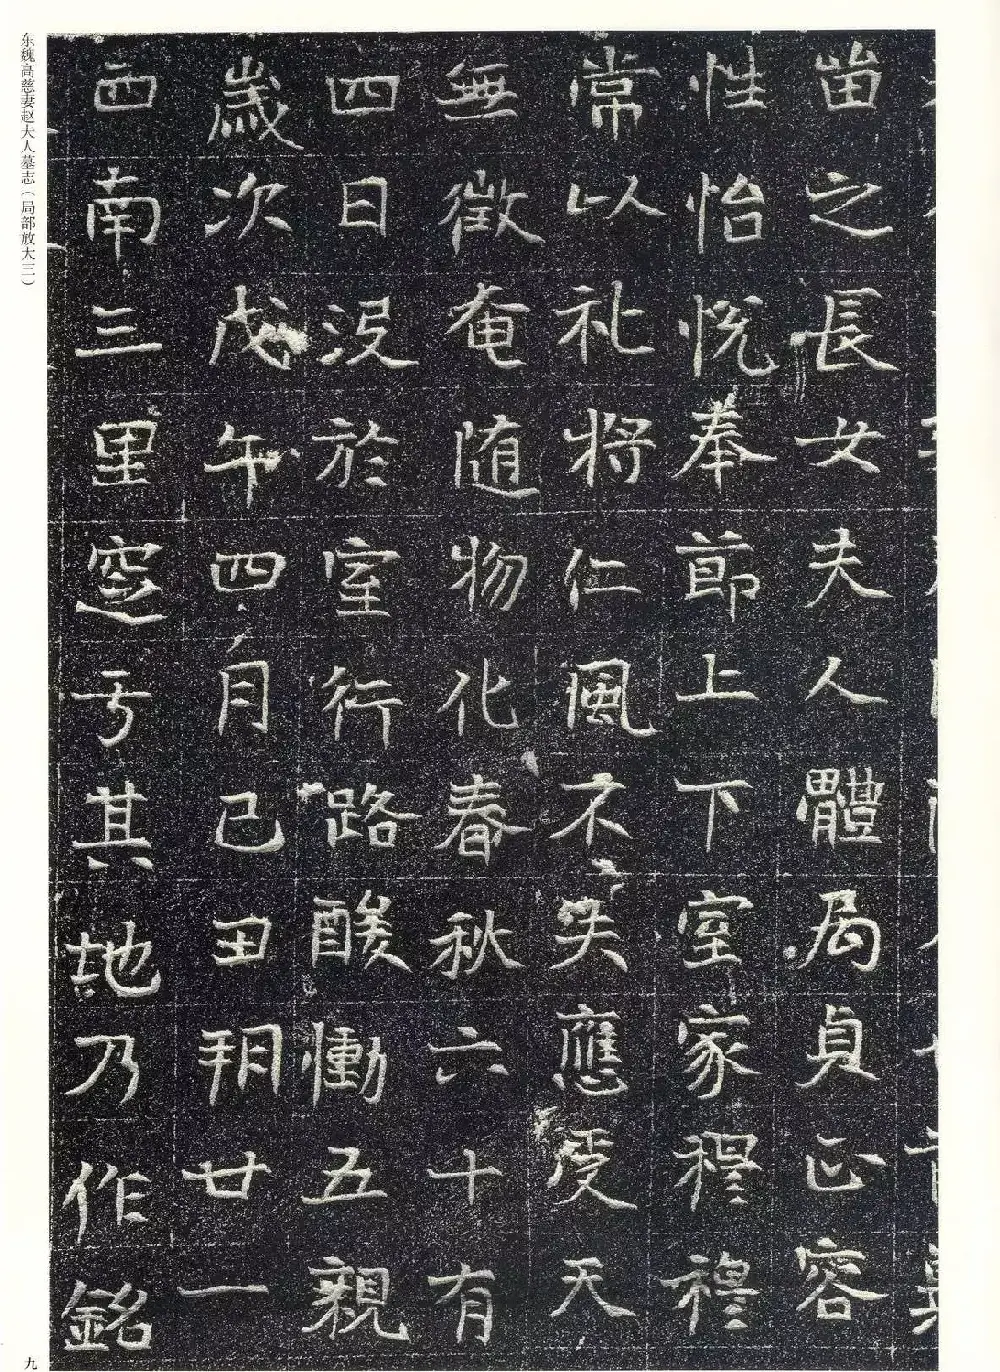 苗之長女夫人體局貞正容
性怡悦奉節上下室家穆穆
常以礼將仁風不失應受天
無徵奄随物化春秋六十有
四日没於室行路酸慟五親
歲次戊午四月己丑朔廿一
西南三里窆于其地乃作銘
东魏高慈妻赵大人墓志（局部放大三）
九